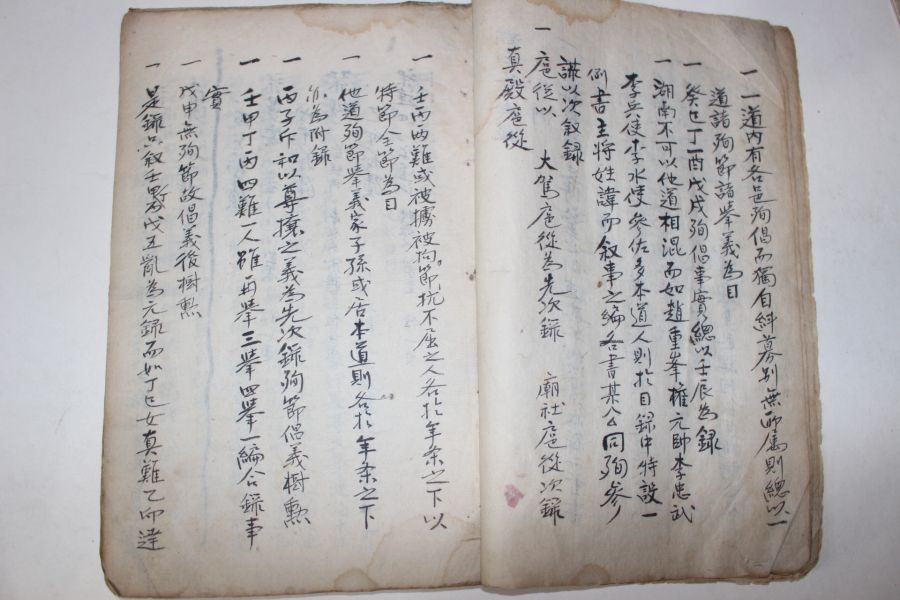 一 一道內有各邑殉倡而獨自糾募別無所屬則總以一
道諸殉節諸擧義為目
一 癸巳丁酉戊戌殉倡事實總以壬辰為錄
一 湖南不可以他道相混而如趙重峯權元帥李忠武
李兵使李水使參佐多本道人則於目錄中特設一
例書主將姓諱而叙事之編各書某公同殉參
謀以次叙錄
一 扈從以 大駕扈從為先次錄 廟社扈從次錄
真殿扈從
一 壬丙兩難或被擄被拘節抗不屈之人各於年条之下以
特節全節為目
一 他道殉節擧義家子孫或居本道則各於年条之下
亦為附錄
一 丙子斥和以尊攘之義為先次錄殉節倡義樹勲
一 壬甲丁丙四難一人雖再擧三擧四擧一編合錄事
實
一 戊申無殉節故倡義後樹勲
一 是錄只叙壬 戊五亂為元錄而如丁巳女真難乙卯逹